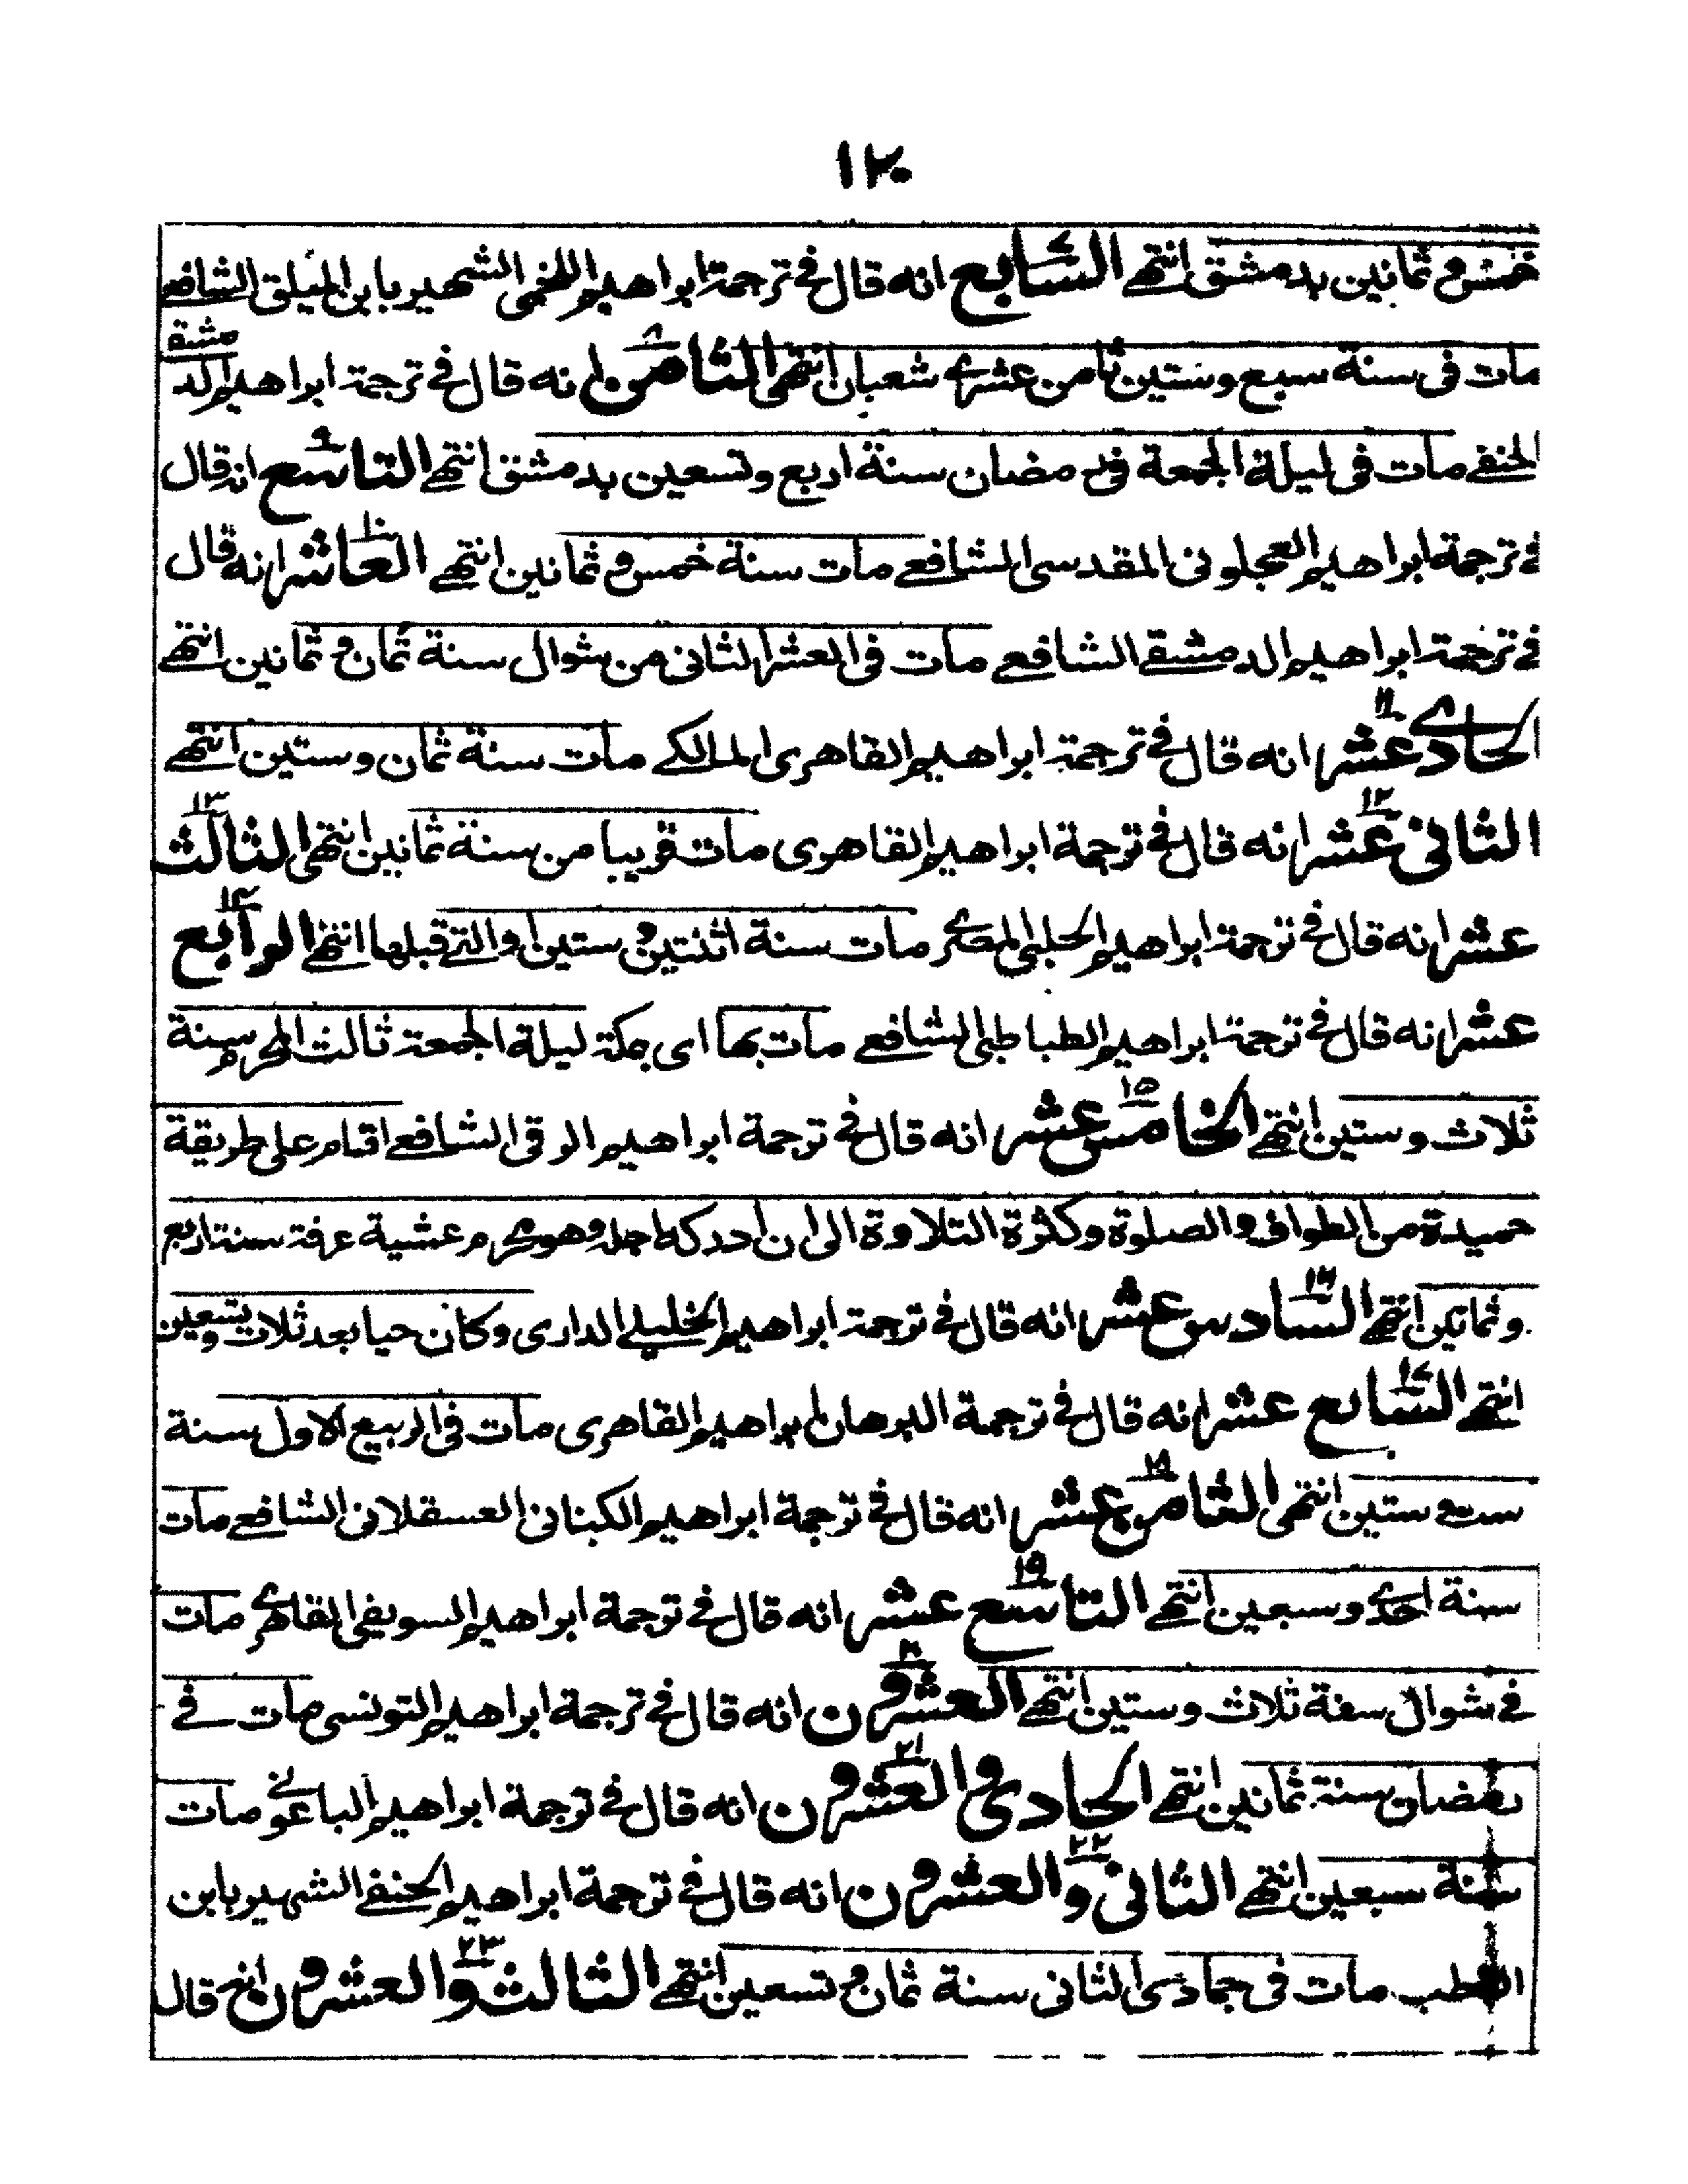 ١٢٠
خمس وثمانين بدمشق انتهى السابع انه قال في ترجمة ابراهيم اللخمي الشهير بابن الميلق الشافعي
مات فى سنة سبع وستين ثامن عشرے شعبان انتهى الثامن انه قال في ترجمة ابراهيم الدمشقي
الحنفے مات فى ليلة الجمعة فى رمضان سنة اربع وتسعين بدمشق انتهے التاسع انه قال
في ترجمة ابراهيم العجلونى المقدسى الشافعے مات سنة خمس وثمانين انتهے العاشر انه قال
في ترجمة ابراهيم الدمشقے الشافعے مات فى العشر الثانى من شوال سنة ثمان وثمانين انتهے
الحادے عشر انه قال في ترجمة ابراهيم القاهرى المالكے مات سنة ثمان وستين انتهے
الثانى عشر انه قال في ترجمة ابراهيم القاهرى مات قريبا من سنة ثمانين انتهى الثالث
عشر انه قال في ترجمة ابراهيم الحلبى المصرے مات سنة اثنتين وستين او التے قبلها انتهے الرابع
عشر انه قال في ترجمة ابراهيم الطباطبى الشافعے مات بها اى بمكة ليلة الجمعة ثالث المحرم سنة
ثلاث وستين انتهے الخامس عشر انه قال في ترجمة ابراهيم الرقى الشافعے اقام على طريقة
حميدة من الطواف والصلوة وكثرة التلاوة الى ان ادركه اجله وهو محرم عشية عرفة سنة اربع
وثمانين انتهے السادس عشر انه قال في ترجمة ابراهيم الخليلے الدارى وكان حيا بعد ثلاث وتسعين
انتهے السابع عشر انه قال في ترجمة البرهان ابراهيم القاهرى مات فى الربيع الاول سنة
سبع وستين انتهى الثامن عشر انه قال في ترجمة ابراهيم الكنانى العسقلانى الشافعے مات
سنة احدے وسبعين انتهے التاسع عشر انه قال في ترجمة ابراهيم السويفى القاهرے مات
في شوال سنة ثلاث وستين انتهے العشرون انه قال في ترجمة ابراهيم التونسى مات في
رمضان سنة ثمانين انتهے الحادى والعشرون انه قال في ترجمة ابراهيم الباعونے مات
سنة سبعين انتهے الثانى والعشرون انه قال في ترجمة ابراهيم الحنفے الشهير بابن
القطب مات فى جمادى الثانى سنة ثمان وتسعين انتهے الثالث والعشرون انه قال